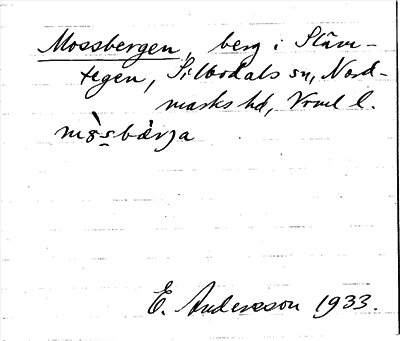 Mossbergen, berg i Släm-
tegen, Silbodals sn, Nord-
marks hd, Vrml l.
mo̊s̱bær̀ja
E. Andersson 1933.